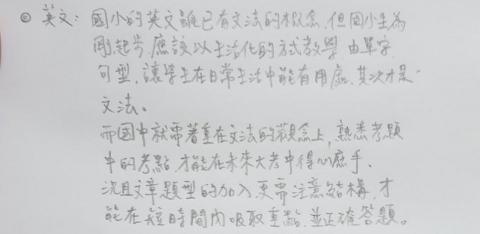 ◎ 英文: 國小的英文雖已有文法的概念,但國小生為
剛起步,應該以生活化的方式教學,由單字、
句型,讓學生在日常生活中能有用處,其次才是
文法。
而國中就需著重在文法的觀念上,熟悉考題
中的考點,才能在未來大考中得心應手。
況且文章題型的加入,更需注意結構,才
能在短時間內吸取重點,並正確答題。